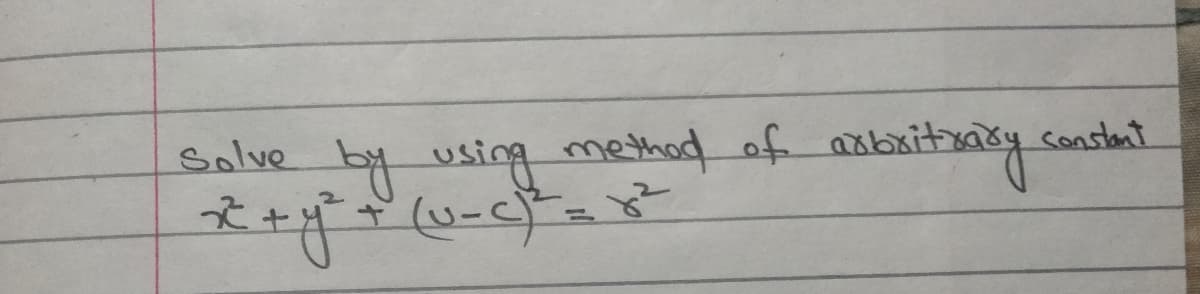 Solve by using method of arbritrary constant
x² + y² + (u-c)² = r²